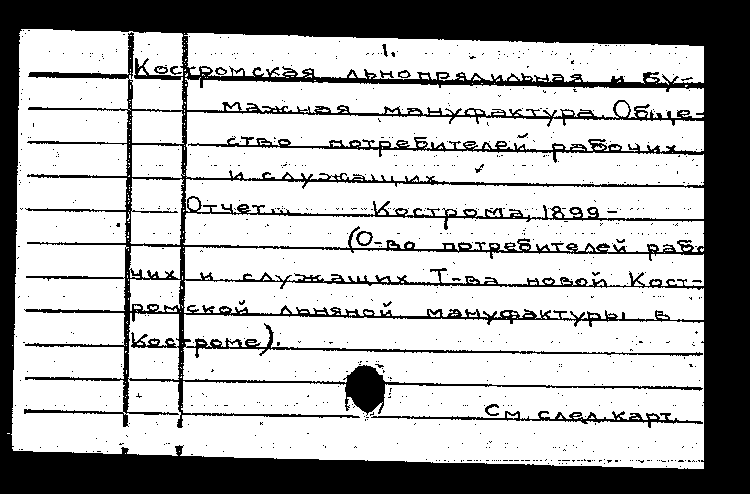 1.
Костромская льнопрядильная и бу-
мажная мануфактура. Обще-
ство потребителей рабочих
и служащих
Отчет... Кострома, 1899-
(О-во потребителей рабо
чих и служащих Т-ва новой Кост-
ромской льняной мануфактуры в
Костроме).
См. след. карт.